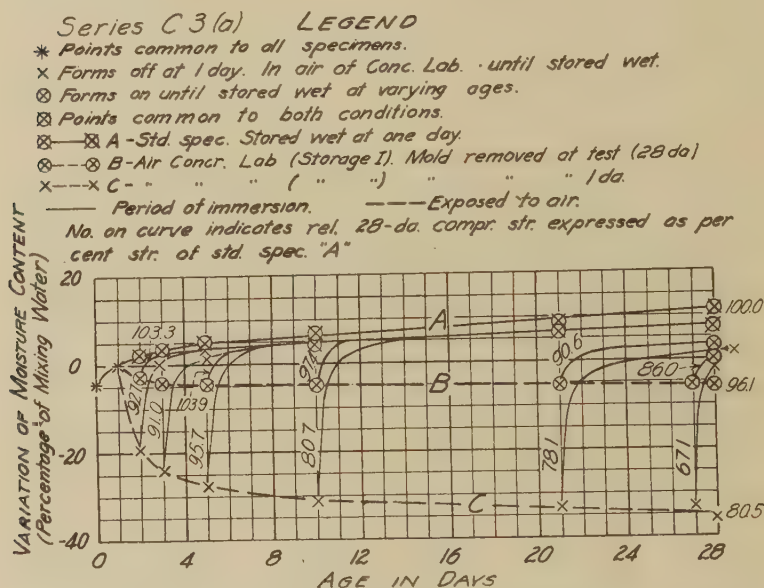 Series C 3 (a) LEGEND
Points common to all specimens.
Forms off at 1 day. In air of Conc. Lab. until stored wet.
Forms on until stored wet at varying ages.
Points common to both conditions.
A - Std. spec. Stored wet at one day.
B - Air Concr. Lab (Storage I). Mold removed at test (28 da)
C - " " " ( " " ) " " " 1 da.
Period of immersion. Exposed to air.
No. on curve indicates rel. 28-da. compr. str. expressed as per
cent str. of std. spec. "A"
VARIATION OF MOISTURE CONTENT
(Percentage of Mixing Water)
20
0
-20
-40
103.3
A
100.0
60.6
86.0
B
96.1
91.0
1039
95.7
80.7
78.1
67.1
C
80.5
0 4 8 12 16 20 24 28
AGE IN DAYS